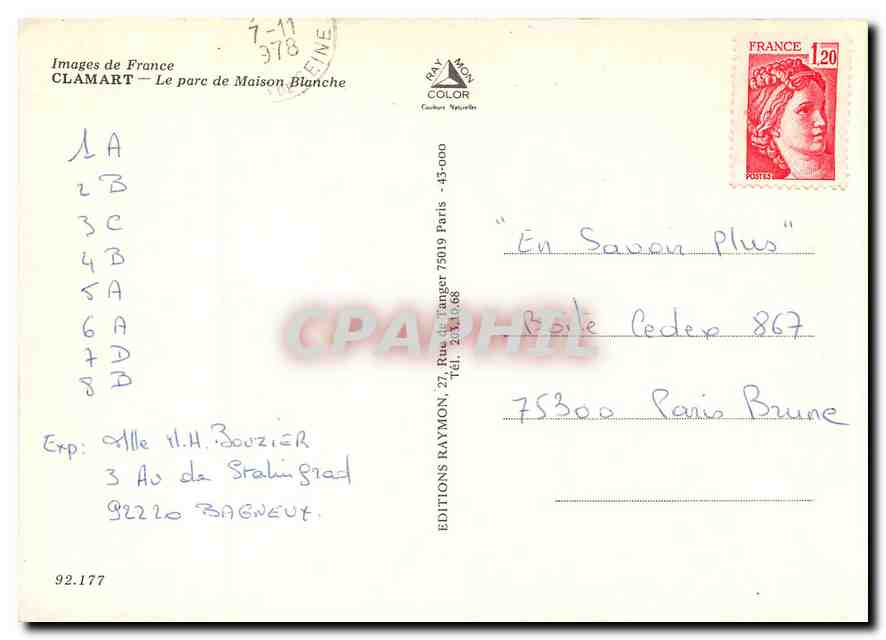 7-11
978
EINE
Images de France
CLAMART — Le parc de Maison Blanche
RAYMON
COLOR
Couleurs Naturelles
FRANCE 1,20
POSTES
1 A
2 B
3 C
4 B
5 A
6 A
7 D
8 B
Exp: Mlle M.H. BOUZIER
3 Av de Stalingrad
92220 BAGNEUX.
92.177
EDITIONS RAYMON, 27, Rue de Tanger 75019 Paris - 43-000
Tél. 203.10.68
"En Savoir Plus"
Boite Cedex 867
75300 Paris Brune
CPAPHIL